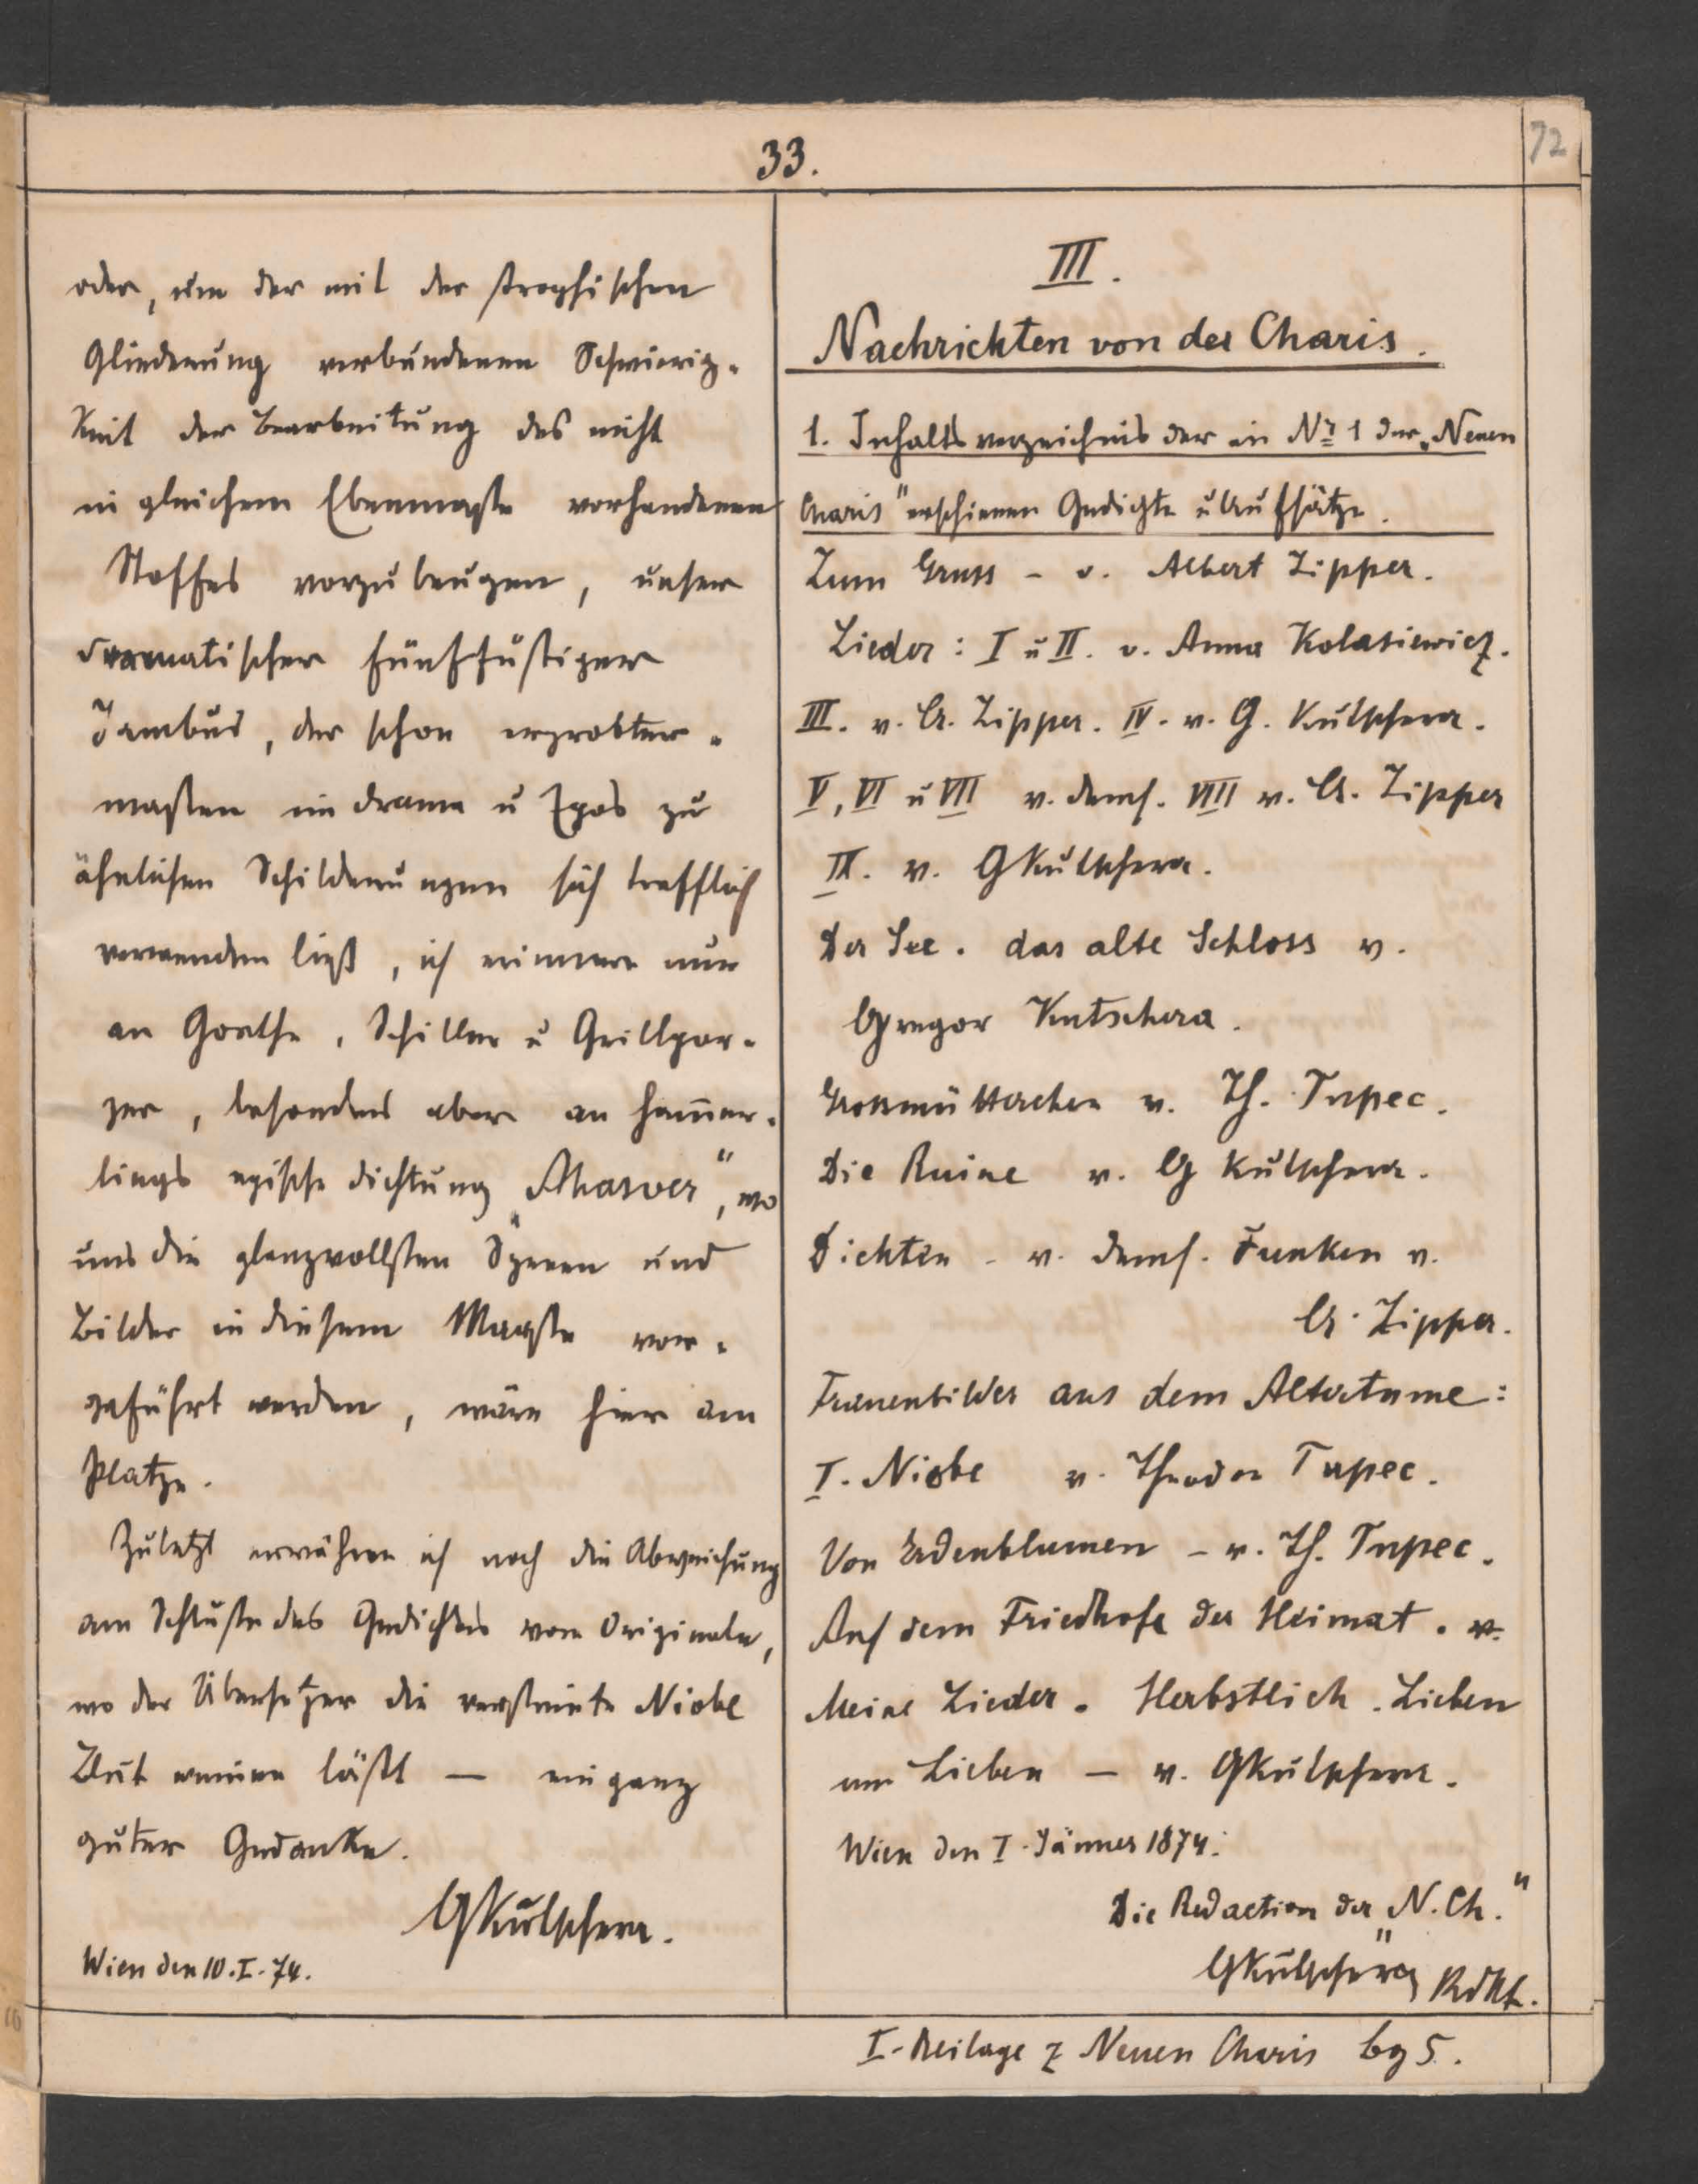 33.
72
oder, um der mit der strophischen
Gliederung verbundenen Schwierig-
keit der Bearbeitung des nicht
in gleichem Ebenmaße vorhandenen
Stoffes vorzubeugen, unser
dramatischer fünffüßiger
Jambus, der schon erprobter-
maßen im Drama u Epos zu
ähnlichen Schilderungen sich trefflich
verwenden ließ, ich erinnere nur
an Goethe, Schiller u Grillpar-
zer, besonders aber an Ham̄er-
lings epische Dichtung „Ahasver", wo
uns die glanzvollsten Szenen und
Bilder in diesem Maaße vor-
geführt werden, wäre hier am
Platze.
Zuletzt erwähne ich noch die Abweichung
am Schluße des Gedichtes vom Originale,
wo der Übersetzer die versteinte Niobe
Blut weinen läßt — ein ganz
guter Gedanke.
GKutschera.
Wien den 10.I.74.
III.
Nachrichten von der Charis.
1. Inhaltsverzeichnis der in Nr. 1 der „Neuen
Charis" erschienen Gedichte u Aufsätze.
Zum Gruss - v. Albert Zipper.
Lieder: I u II. v. Anna Kolasiewicz.
III. v. A. Zipper. IV. v. G. Kutschera.
V, VI u VII v. dems. VIII v. A. Zipper
IX. v. GKutschera.
Der See. das alte Schloss v.
Gregor Kutschera.
Grossmütterchen v. Th. Tupec.
Die Ruine v. G Kutschera.
Dichten - v. dems. Funken v.
A. Zipper.
Frauenbilder aus dem Altertume:
I. Niobe v. Theodor Tupec.
Von Erdenblumen - v. Th. Tupec.
Auf dem Friedhofe der Heimat. v.
Meine Lieder. Herbstlich. Lieben
um Lieben — v. GKutschera.
Wien den I. Jänner 1874.
Die Redaction der „N. Ch."
GKutschera Rdkt.
I. Beilage z Neuen Charis bg 5.